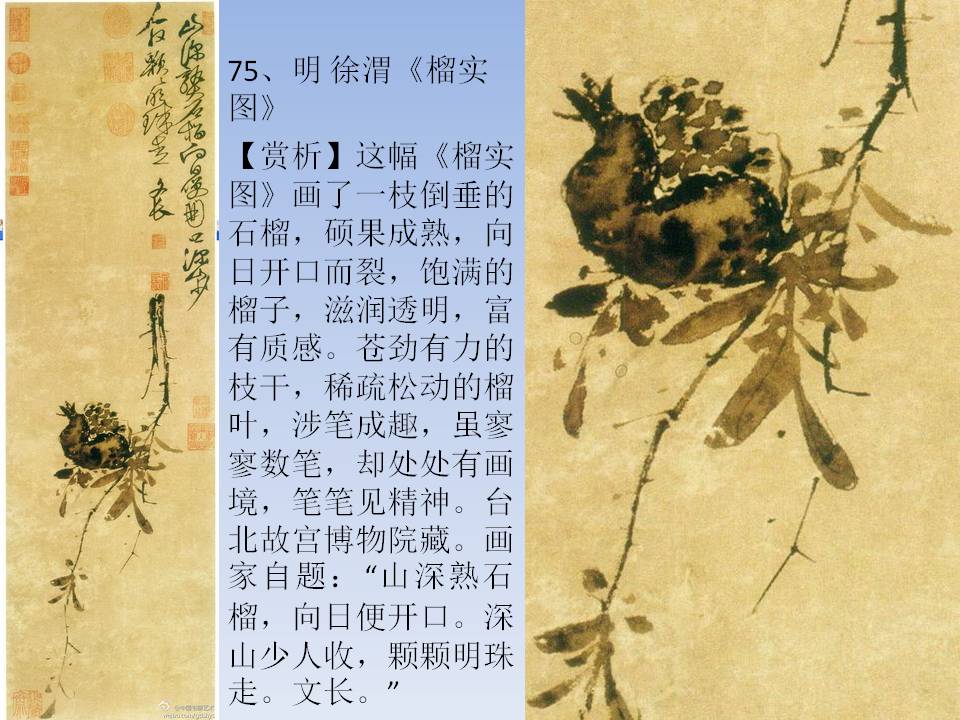 山深熟石榴向日便開口深山少
人收顆々明珠走
文長
75、明 徐渭《榴实
图》
【赏析】这幅《榴实
图》画了一枝倒垂的
石榴，硕果成熟，向
日开口而裂，饱满的
榴子，滋润透明，富
有质感。苍劲有力的
枝干，稀疏松动的榴
叶，涉笔成趣，虽寥
寥数笔，却处处有画
境，笔笔见精神。台
北故宫博物院藏。画
家自题：“山深熟石
榴，向日便开口。深
山少人收，颗颗明珠
走。文长。”